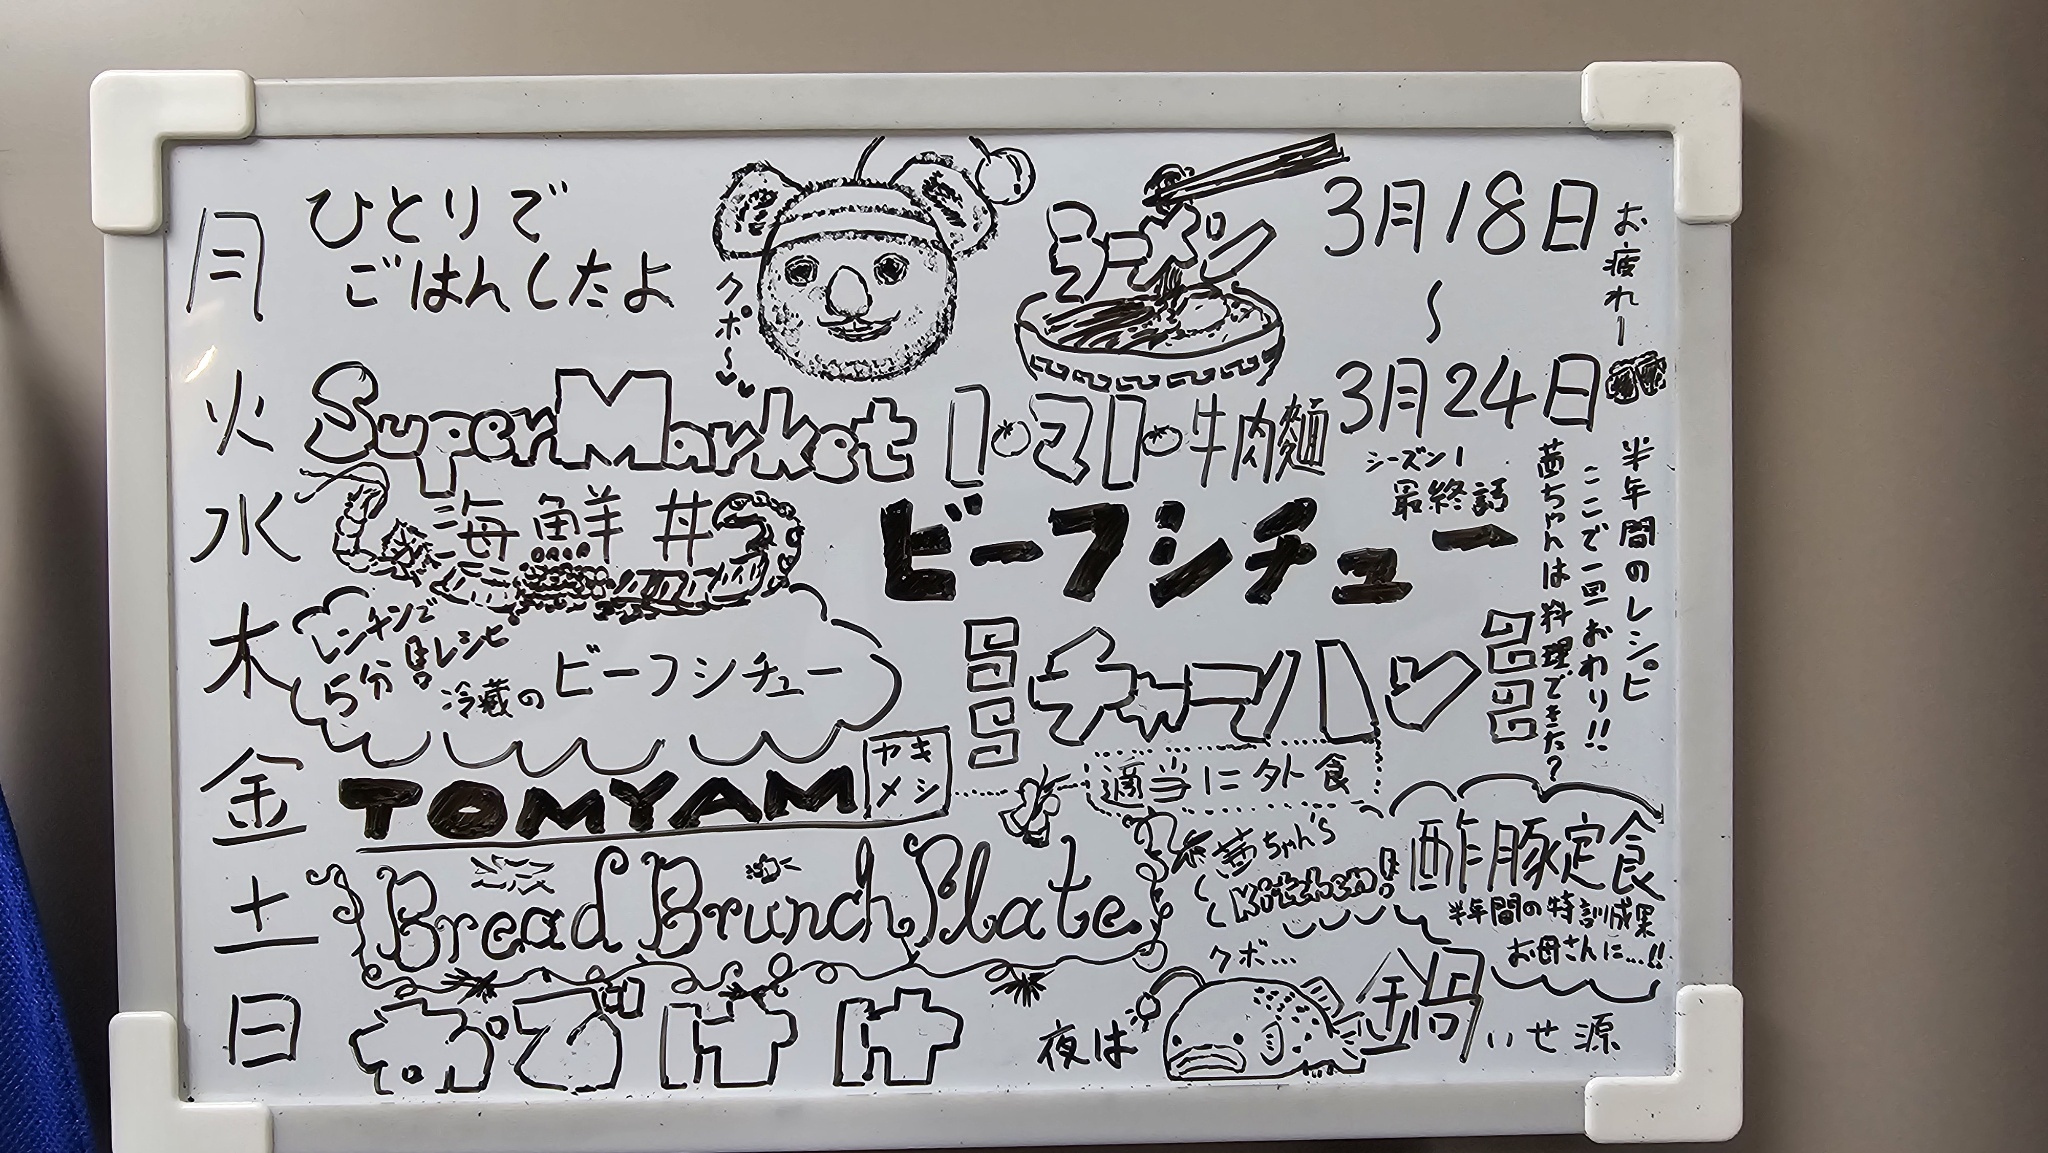 月
ひとりで
ごはんしたよ
クポ〜
ラーメン
3月18日
〜
3月24日
お疲れー
火
SuperMarket
トマト牛肉麺
シーズン1
最終話
半年間のレシピ
ここで一回おわり!!
茜ちゃんは料理できた?
水
海鮮丼
ビーフシチュー
木
レンチンで
5分
レシピ
冷蔵の
ビーフシチュー
チャーハン
金
TOMYAM
ヤキ
メシ
適当に外食
土
Bread Brunch Plate
茜ちゃん's
Kitchen
酢豚定食
半年間の特訓成果
お母さんに...!!
日
クボ...
夜は
鍋
いせ源